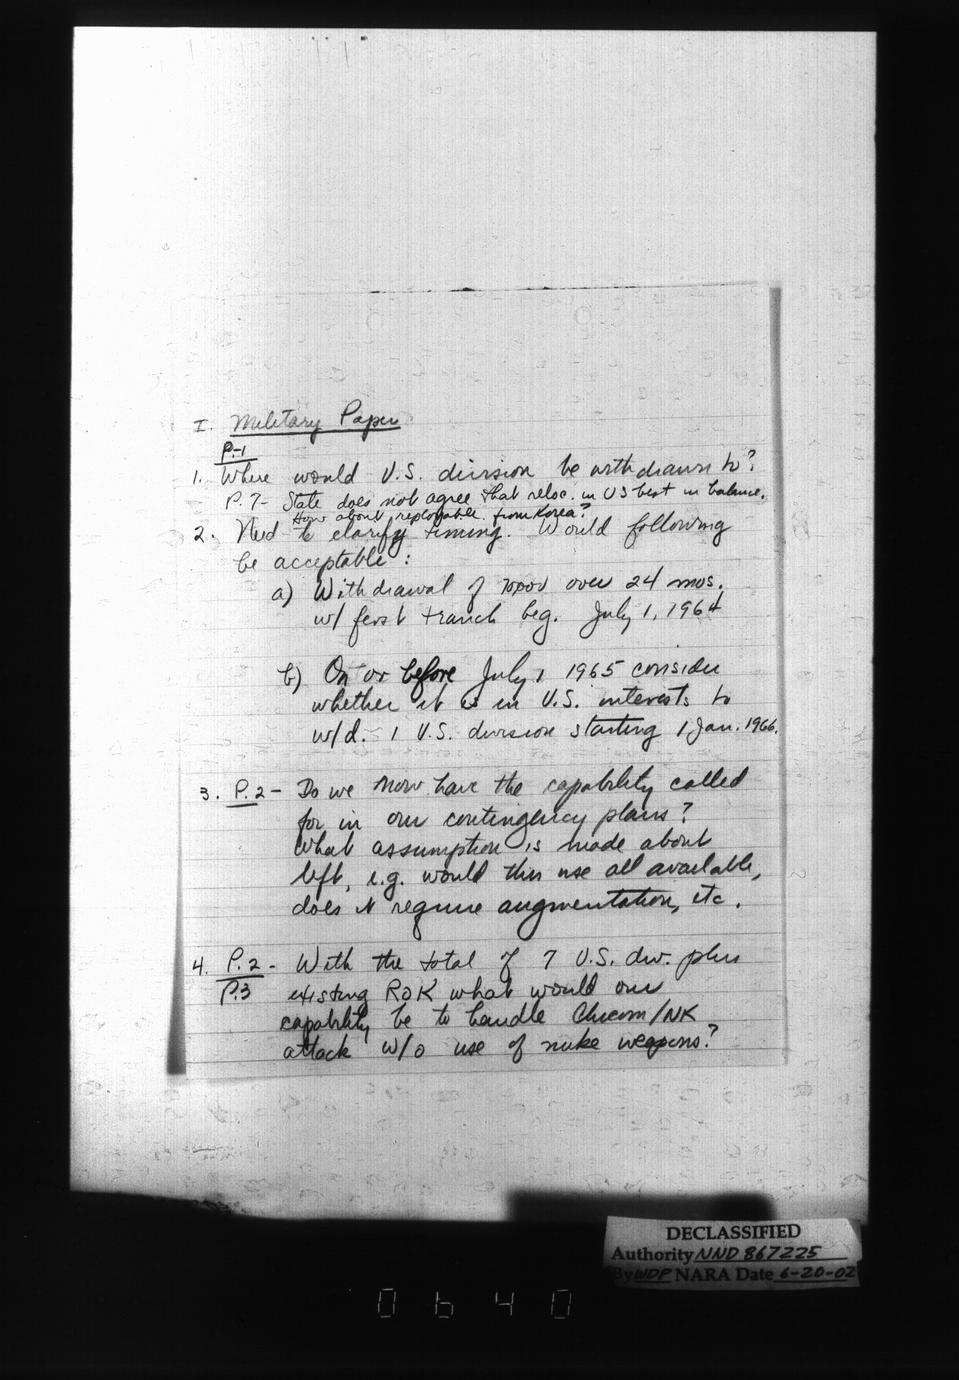 I. Military Paper
P-1
1. Where would U.S. division be withdrawn to?
P. 7- State does not agree that reloc. in US best in balance.
How about replogable from Korea?
2. Need to clarify timing. Would following
be acceptable:
a) Withdrawal of over 24 mos.
w/ first tranch beg. July 1, 1964
b) On or before July 1 1965 consider
whether it is in U.S. interests to
w/d. 1 U.S. division starting 1 Jan. 1966.
3. P.2- Do we now have the capability called
for in our contingency plans?
What assumption is made about
left, e.g. would this use all available,
does it require augmentation, etc.
4. P.2- With the total of 7 U.S. div. plus
P.3 existing ROK what would our
capability be to handle Chicom/NK
attack w/o use of nuke weapons?
DECLASSIFIED
Authority NND 867225
By WDP NARA Date 6-20-02
0640